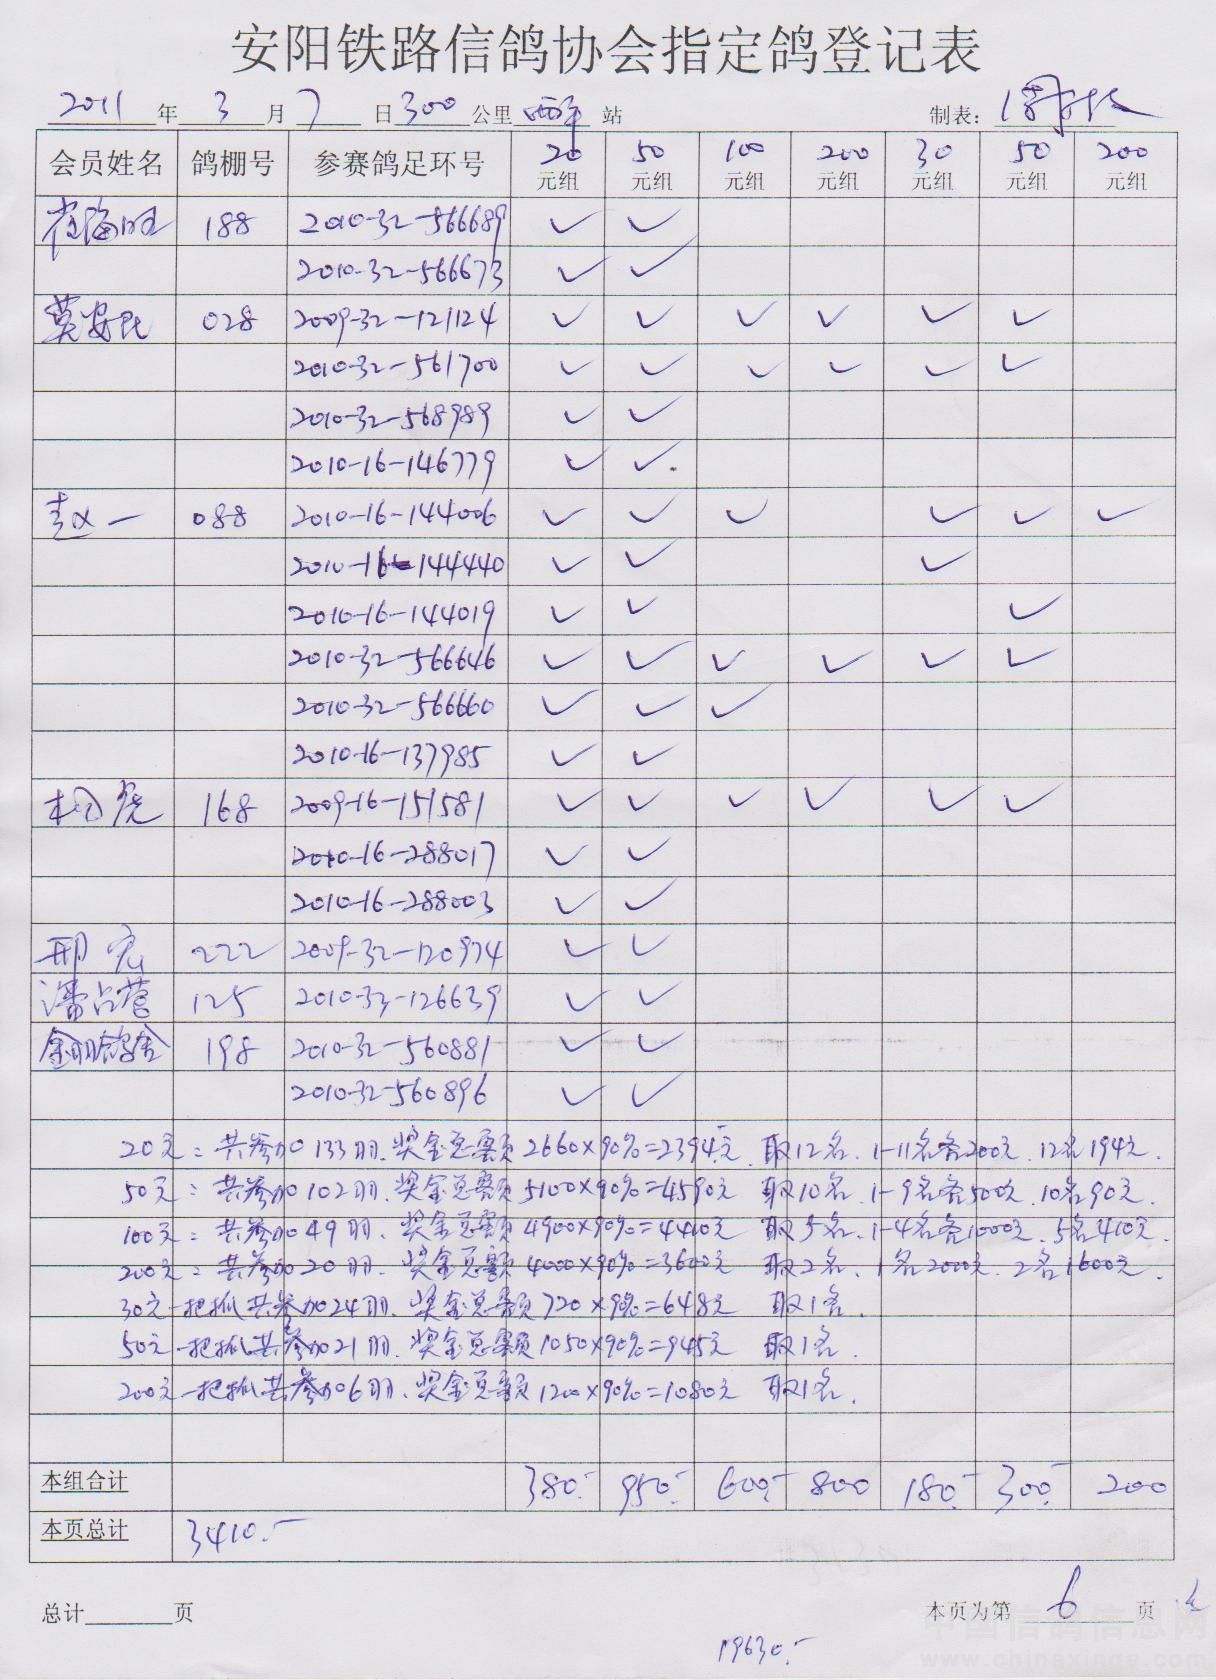 安阳铁路信鸽协会指定鸽登记表
2011年 3月 7日 300公里 西平 站 制表:
会员姓名 鸽棚号 参赛鸽足环号 20元组 50元组 100元组 200元组 30元组 50元组 200元组
崔海旺 188 2010-32-566689 ✓ ✓
2010-32-566673 ✓ ✓
莫安民 028 2009-32-121124 ✓ ✓ ✓ ✓ ✓ ✓
2010-32-561700 ✓ ✓ ✓ ✓ ✓ ✓
2010-32-568989 ✓ ✓
2010-16-146779 ✓ ✓
赵一 088 2010-16-144006 ✓ ✓ ✓ ✓ ✓ ✓
2010-16-144440 ✓ ✓ ✓
2010-16-144019 ✓ ✓ ✓
2010-32-566646 ✓ ✓ ✓ ✓ ✓ ✓
2010-32-566660 ✓ ✓ ✓
2010-16-137985 ✓ ✓
168 2009-16-151581 ✓ ✓ ✓ ✓ ✓ ✓
2010-16-288017 ✓ ✓
2010-16-288003 ✓ ✓
邢宏 222 2009-32-120974 ✓ ✓
潘占营 125 2010-33-126639 ✓ ✓
金翔鸽舍 198 2010-32-560881 ✓ ✓
2010-32-560896 ✓ ✓
20元:共参加133羽.奖金总额2660×90%=2394元.取12名.1-11名各200元.12名194元.
50元:共参加102羽.奖金总额5100×90%=4590元 取10名.1-9名各500元.10名90元.
100元:共参加49羽.奖金总额4900×90%=4410元 取5名.1-4名各1000元.5名410元.
200元:共参加20羽.奖金总额4000×90%=3600元 取2名.1名2000元.2名1600元.
30元一把抓共参加24羽.奖金总额720×90%=648元 取1名.
50元一把抓共参加21羽.奖金总额1050×90%=945元 取1名.
200元一把抓共参加6羽.奖金总额1200×90%=1080元 取1名.
本组合计 380.- 950.- 600.- 800 180.- 300.- 200
本页总计 3410.-
总计 页 本页为第 6 页
19630.-
中国信鸽信息网
www.chinaxinge.com